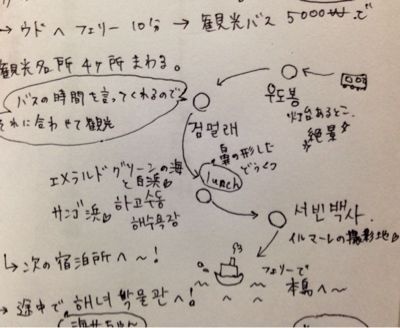 → ウドへ フェリー 10分 → 観光バス 5000₩で
観光名所 4ヶ所 まわる。
バスの時間を言ってくれるので
それに合わせて観光
우도봉
灯台あるところ
絶景
검멀래
鼻の形した
どうくつ
lunch
エメラルドグリーンの海
と白浜
サンゴ浜
하고수동
해수욕장
서빈백사.
イルマーレの撮影地
↳ 次の宿泊所へ〜!
フェリーで
本島へ〜
→ 途中で、해녀 박물관へ!